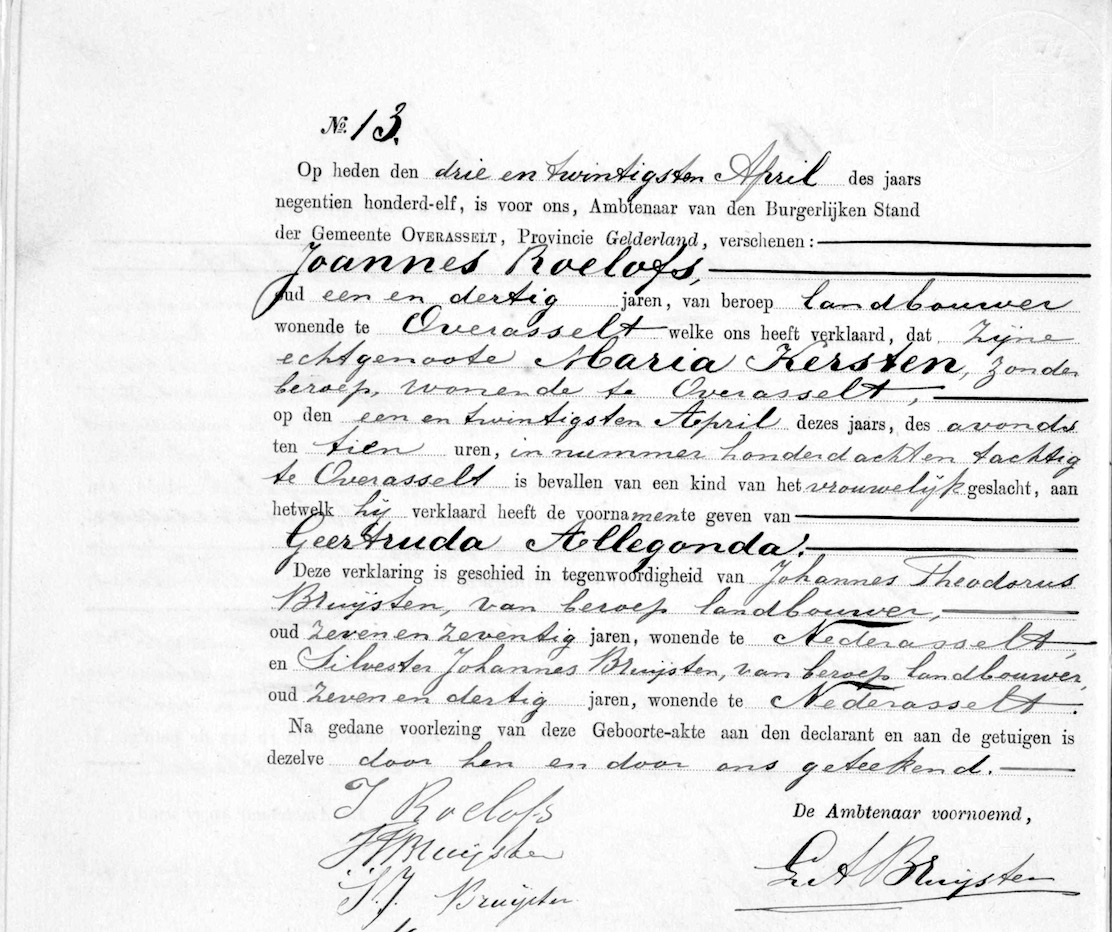 No. 13.
Op heden den drie en twintigsten April des jaars
negentien honderd-elf, is voor ons, Ambtenaar van den Burgerlijken Stand
der Gemeente OVERASSELT, Provincie Gelderland, verschenen:
Joannes Roelofs,
oud een en dertig jaren, van beroep landbouwer
wonende te Overasselt welke ons heeft verklaard, dat zijne
echtgenoote Maria Kersten, zonder
beroep, wonende te Overasselt,
op den een en twintigsten April dezes jaars, des avonds
ten tien uren, in nummer honderd acht en tachtig
te Overasselt is bevallen van een kind van het vrouwelijk geslacht, aan
hetwelk hij verklaard heeft de voornamen te geven van
Geertruda Allegonda.
Deze verklaring is geschied in tegenwoordigheid van Johannes Theodorus
Bruijsten, van beroep landbouwer,
oud zeven en zeventig jaren, wonende te Nederasselt,
en Silvester Johannes Bruijsten, van beroep landbouwer,
oud zeven en dertig jaren, wonende te Nederasselt.
Na gedane voorlezing van deze Geboorte-akte aan den declarant en aan de getuigen is
dezelve door hen en door ons geteekend.
J Roelofs
De Ambtenaar voornoemd,
Bruijsten
Bruijsten
S. J. Bruijsten